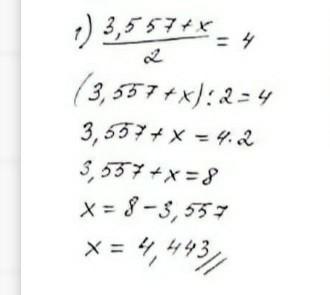 1) (3,557+x)/2 = 4
(3,557+x):2=4
3,557+x=4·2
3,557+x=8
x=8-3,557
x=4,443//